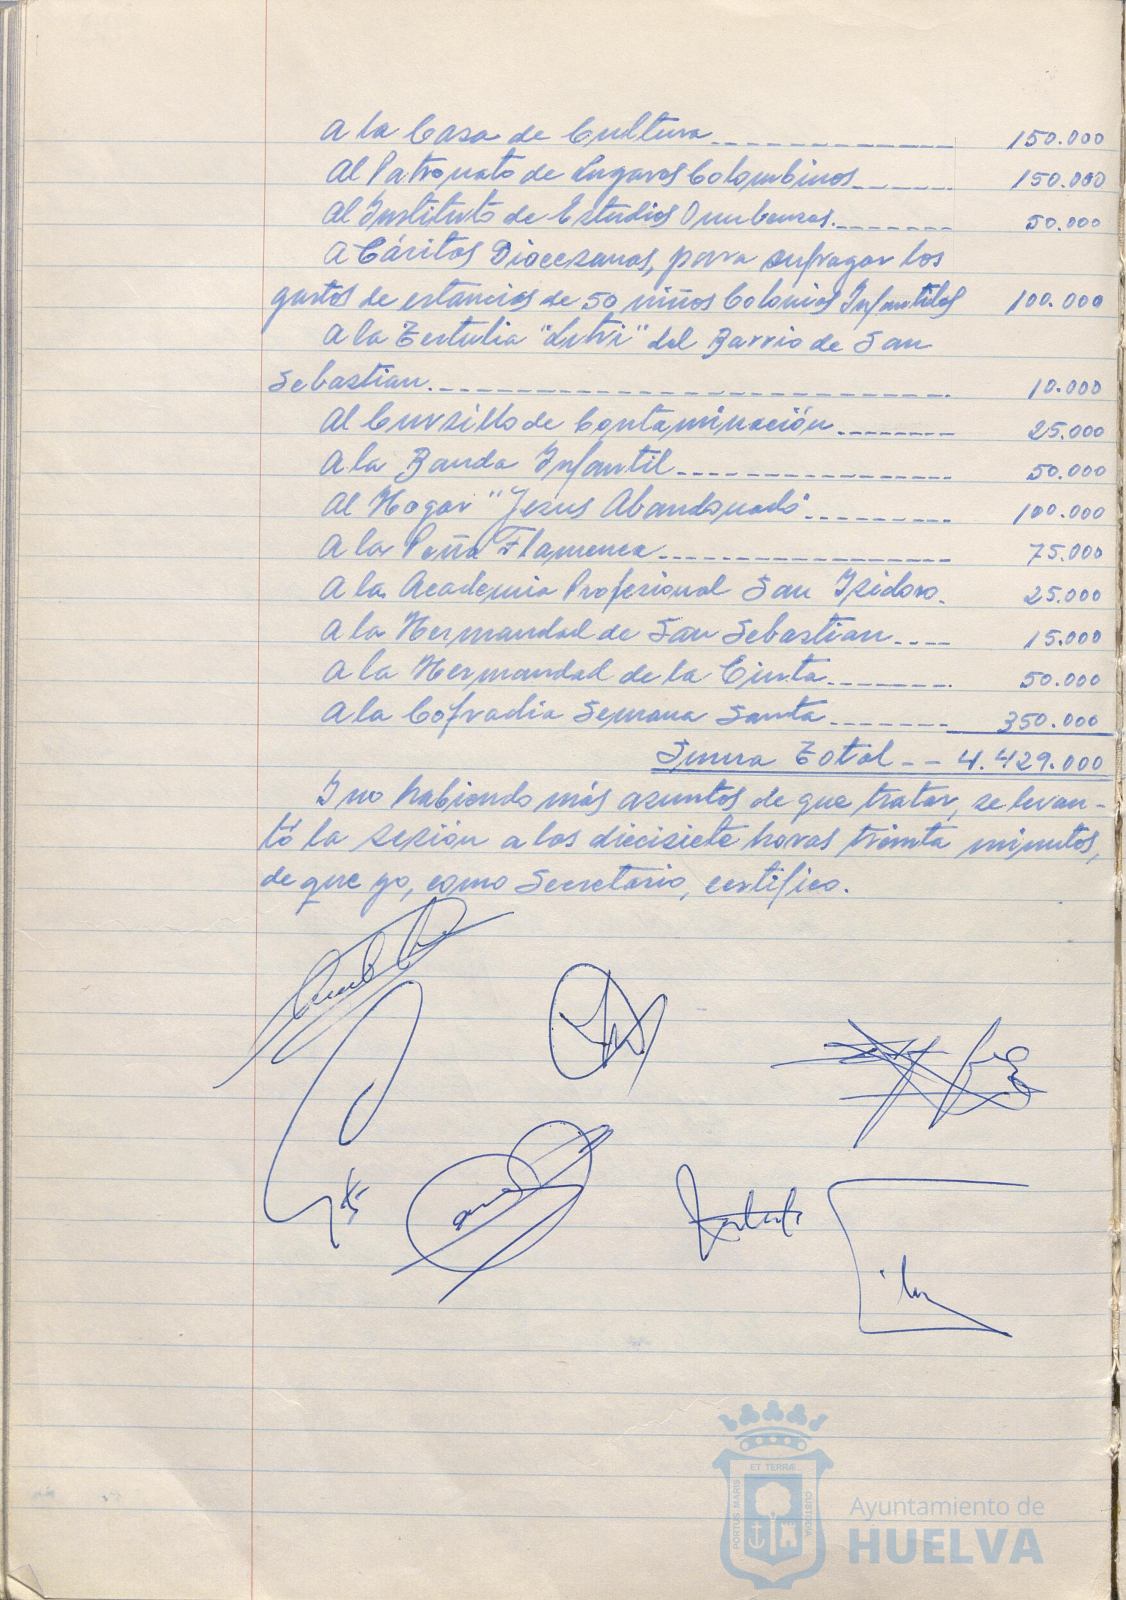 A la Casa de Cultura 150.000
Al Patronato de Lugares Colombinos 150.000
Al Instituto de Estudios Onubenses. 50.000
A Cáritas Diocesanas, para sufragar los
gastos de estancias de 50 niños Colonias Infantiles 100.000
A la Tertulia "Litri" del Barrio de San
Sebastian. 10.000
Al Cursillo de Contaminación 25.000
A la Banda Infantil 50.000
Al Hogar "Jesus Abandonado" 100.000
A la Peña Flamenca 75.000
A la Academia Profesional San Isidoro. 25.000
A la Hermandad de San Sebastian 15.000
A la Hermandad de la Cinta 50.000
A la Cofradia Semana Santa 350.000
Suma Total -- 4.429.000
Y no habiendo más asuntos de que tratar, se levan-
tó la sesión a las diecisiete horas treinta minutos,
de que yo, como Secretario, certifico.
ET TERRÆ
PORTUS MARIS
CUSTODIA
Ayuntamiento de
HUELVA